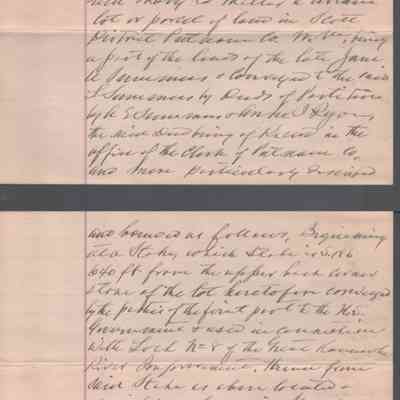 lot or parcel of land in Scott
District Putnam Co. W Va, being
a part of the lands of the late Jane
A Summers & conveyed to the said
Summers by Deeds of Partition
by A E Summers & Annie L
the said Deed being of Record in the
office of the Clerk of Putnam Co,
and more particularly described
and bounded as follows, Beginning
at a Stake, which Stake is
640 ft from the upper back corner
stone of the lot heretofore conveyed
by the parties of the first part to the
Government & used in connection
With Lock No 8 of the Great Kanawha
River Improvement, thence from
said Stake as above located